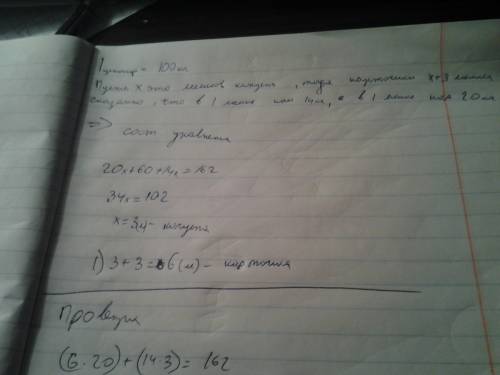 1 центнер = 100 кг
Пусть x это мешков капусты, тогда картошки x+3 мешка
сказано, что в 1 мешке 14 кг, а в 1 мешке 20 кг
=> сост уравнение
20x+60+14x=162
34x=102
x=3 - капуста
1) 3+3=6(м) - картошка
Проверка
(6·20)+(14·3)=162